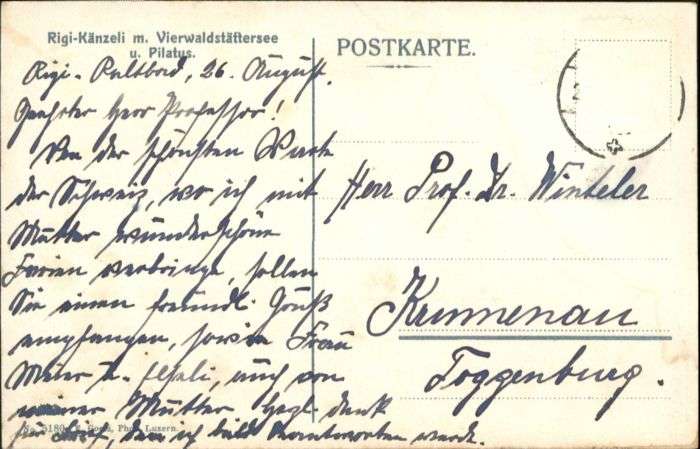 Rigi-Känzeli m. Vierwaldstättersee
u. Pilatus.
POSTKARTE.
Rigi-Kaltbad, 26. August.
Geehrter Herr Professor!
Von der schönsten Warte
der Schweiz, wo ich mit
Mutter wunderschöne
Ferien verbringe, sollen
Sie einen freundl. Gruß
empfangen, sowie Frau
Meier u. auch von
meiner Mutter. Hegl. dank
für Brief, den ich bald beantworten werde.
Herr Prof. Dr. Winteler
Krummenau
Toggenburg.
Phot. Luzern.